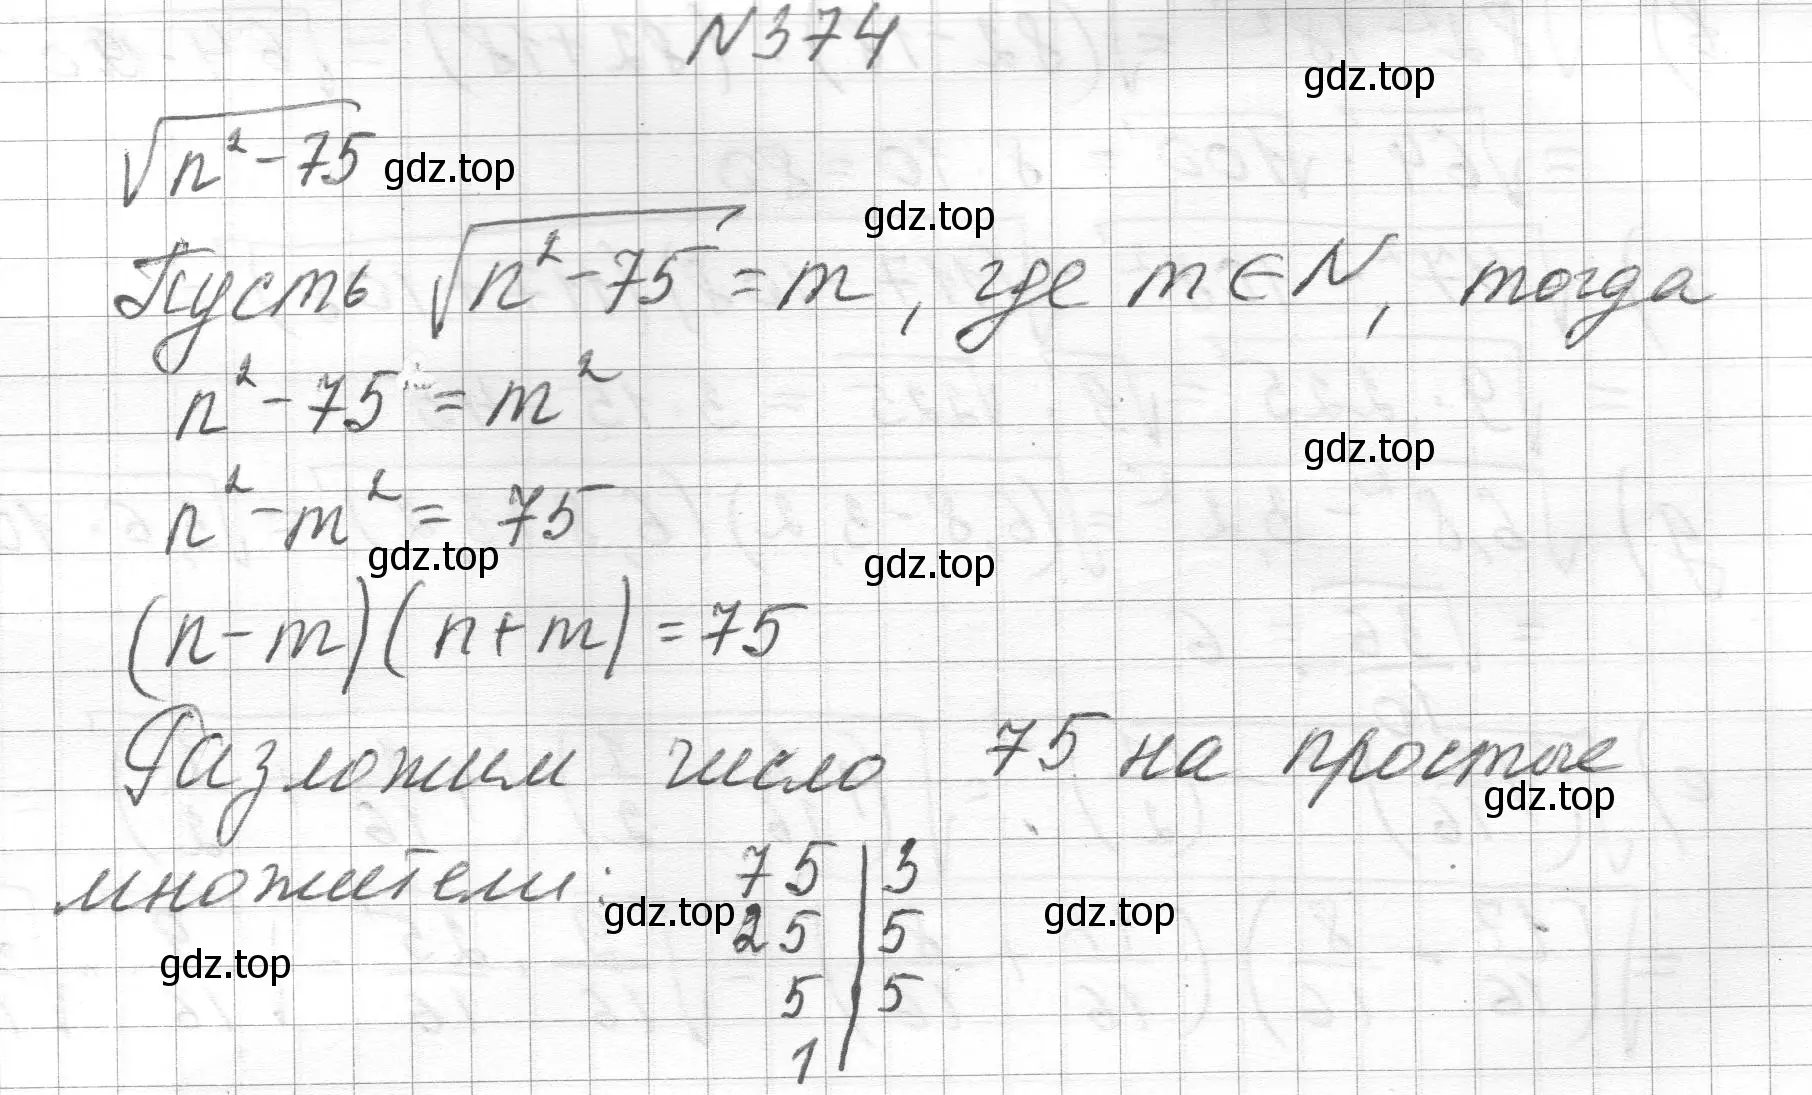 N374
√(n² - 75) gdz.top gdz.top
Пусть √(n² - 75) = m, где m ∈ N, тогда gdz.top
n² - 75 = m²
gdz.top
n² - m² = 75
gdz.top gdz.top
(n - m)(n + m) = 75
Разложим число 75 на простые
gdz.top
множители: 75 | 3
gdz.top 25 | 5 gdz.top
gdz.top
5 | 5
1